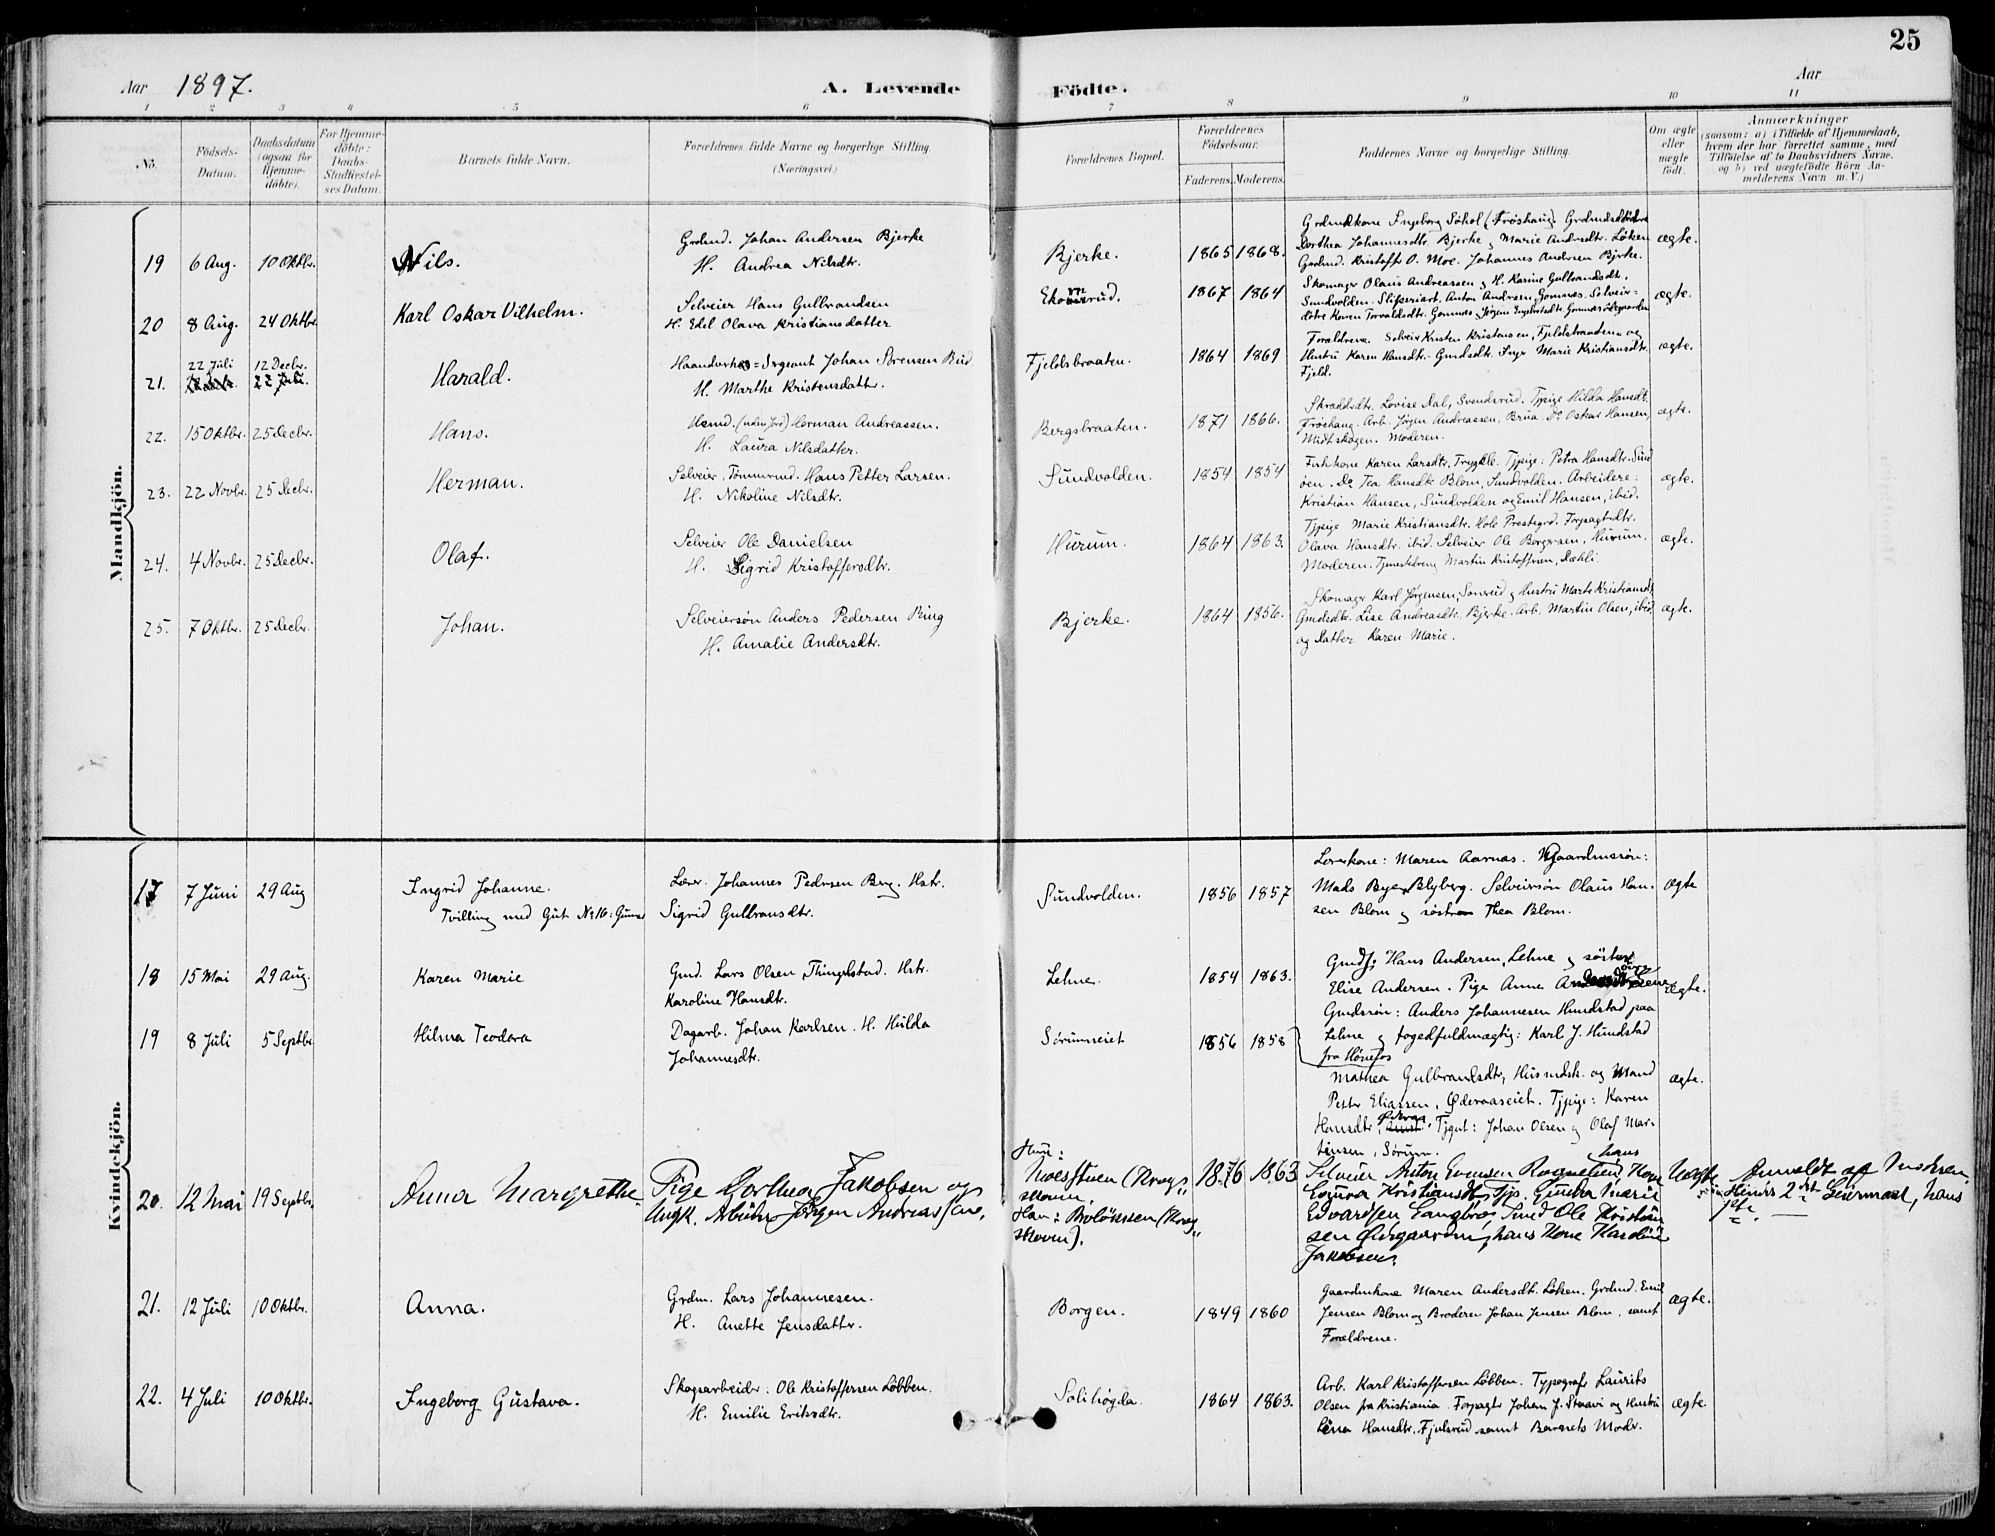 25
Aar 1897. A. Levende Födte. Aar
1 2 3 4 5 6 7 8 9 10 11
No. Födsels-Datum. Daabsdatum (ogsaa for Hjemmedöbte). For Hjemmedöbte: Daabs-Stadfæstelses Datum. Barnets fulde Navn. Forældrenes fulde Navne og borgerlige Stilling. (Næringsvei.) Forældrenes Bopæl. Forældrenes Födselsaar. Faderens. Moderens. Faddernes Navne og borgerlige Stilling. Om ægte eller uægte födt. Anmærkninger (saasom: a) i Tilfælde af Hjemmedaab, hvem der har forrettet samme, med Tilföielse af to Daabsvidners Navne, og b) ved uægtefödte Börn Anmelderens Navn m. V.)
Mandkjön.
19 6 Aug. 10 Oktbr. Nils.
Grdmd. Johan Andersen Bjerke
H. Andrea Nilsdtr.
Bjerke. 1865 1868.
Grdmdkone Ingeborg Søhol (Frøshaug).
Dorthea Johannesdtr. Bjerke & Marie Andrsdtr. Løken
Grdmd. Kristoffr O. Moe. Johannes Andersen Bjerke.
ægte.
20 8 Aug. 24 Oktbr. Karl Oskar Vilhelm.
Selveier Hans Gulbrandsen
H. Edel Olava Kristiansdatter
1867 1864
Skomager Olaus Andreassen & H. Karine Gulbrandsdtr.
Sundvolden. Sliperiarb. Anton Andrsen, Gomnæs. Selveier=
døtre Karen Torvaldsdtr. Gomnæs
ægte.
22 Juli 12 Decbr.
21. 22 Juli. Harald.
Sergeant Johan Sørensen Bud
H. Marthe Kristensdatter.
Fjeldsbraaten. 1864 1869
Forældrene. Selveir Kristen Kristensen, Fjeldsbraaten og
Hustru Karen Hansdtr. Gmdsdtr. Inga Marie Kristiansdtr.
Fjeld.
ægte.
22. 15 Oktbr. 25 Decbr. Hans.
Husmd. (uden Jord) Herman Andreassen.
H. Laura Nilsdatter.
Bergsbraaten. 1871 1866.
Lovise Dal, Svenderud. Tjpige Hilda Hansdt.
Frøshaug. Arb. Jørgen Andreassen, Brua. Do Oskar Hansen,
Midtskogen. Moderen.
ægte.
23. 22 Novbr. 25 Decbr. Herman.
Selveier, Tømmermd. Hans Petter Larsen.
H. Nikoline Nilsdtr.
Sundvolden. 1854 1854
Karen Larsdtr, Trygkle. Tjpige: Petra Hansdtr. Sund
øen. Do Tea Hansdtr Blom, Sundvolden. Arbeidere:
Kristian Hansen, Sundvolden og Emil Hansen, ibid.
ægte.
24. 4 Novbr. 25 Decbr. Olaf.
Selveier Ole Danielsen
H. Sigrid Kristoffersdtr.
Hurum. 1864 1863.
Tjpige Marie Kristiansdtr. Hole Prestegrd. Forpagtrdtr.
Olava Hansdtr ibid. Selveier Ole Borgersen, Hurum.
Moderen. Tjenestedreng Martin Kristoffersen, Dæhli
ægte.
25. 7 Oktbr. 25 Decbr. Johan.
Selveiersøn Anders Pedersen Ring
H. Amalie Andersdtr.
Bjerke. 1864 1856.
Skomager Karl Jørgensen, Sonrud & Hustru Marte Kristiansdt.
Gmdsdtr. Lise Andreasdtr. Bjerke. Arb. Martin Olsen, ibid
og Datter Karen Marie.
ægte.
Kvindekjön.
17 7 Juni 29 Aug Ingrid Johanne.
Tvilling med Gut No 16: Gunnar
Lærer. Johannes Pedersen Berg. Hstr.
Sigrid Gulbransdtr.
Sundvolden. 1856 1857
Lærerkone: Maren Aarnæs. Gaardmssøn:
Mads Bye, Blyberg. Selveirsøn Olaus Han-
sen Blom & søstren Thea Blom.
ægte
18 15 Mai 29 Aug. Karen Marie
Gmd. Lars Olsen Thingelstad. Hstr.
Karoline Hansdtr.
Lehne. 1854 1863.
Hans Andersen, Lehne & søster
Elise Andersen. Pige Anne
Gmdssøn: Anders Johannesen Hundstad paa
Lehne & fogedfuldmægtig: Karl J. Hundstad
fra Hønefos
ægte.
19 8 Juli 5 Septbr. Hilma Teodora
Dagarb. Johan Karlsen. H. Hulda
Johannesdtr.
Sørumseiet 1856 1858
Mathea Gulbrandsdtr, Husmdsk. og Mand
Petter Eliassen, Øderaaseiet. Tjpige: Karen
Hansdtr, Tjgut: Johan Olsen & Olaf Mar-
tinsen, Sørum.
ægte.
20. 12 Mai 19 Septbr. Anna Margrethe
Pige Dorthea Jakobsen og
Ungk. Arbeider Jørgen Andreassen.
Hun:
Moesstuen (Krog-
skoven.
Han: (Krog-
skoven).
1876 1863
Selveier Anton Evensen hans Kone
Laura Kristiansdtr, Tjp. Gunda Marie
Edvardsen Langbro, Smed Ole Kristian
sen hans Kone Karoline
Jakobsen.
Uægte
Anmeldt af Moderen.
Hendes 2det Leiermaal, hans
21. 12 Juli 10 Oktbr. Anna.
Grdm. Lars Johannesen.
H. Anette Jensdatter.
Borgen. 1849 1860
Gaardmkone Maren Andersdt. Løken. Grdmd. Emil
Jensen Blom og Broderen Johan Jensen Blom, samt
Forældrene.
ægte.
22. 4 Juli 10 Oktbr. Ingeborg Gustava.
Skogsarbeider: Ole Kristoffersen Løbben.
H. Emilie Eriksdtr.
Solihøgda. 1864 1863.
Arb. Karl Kristoffersen Løbben. Typograf Laurits
Olsen fra Kristiania. Forpagtr Johan J. Straavi og Hustru
Lena Hansdtr. Fjulsrud samt Barnets Moder.
ægte.